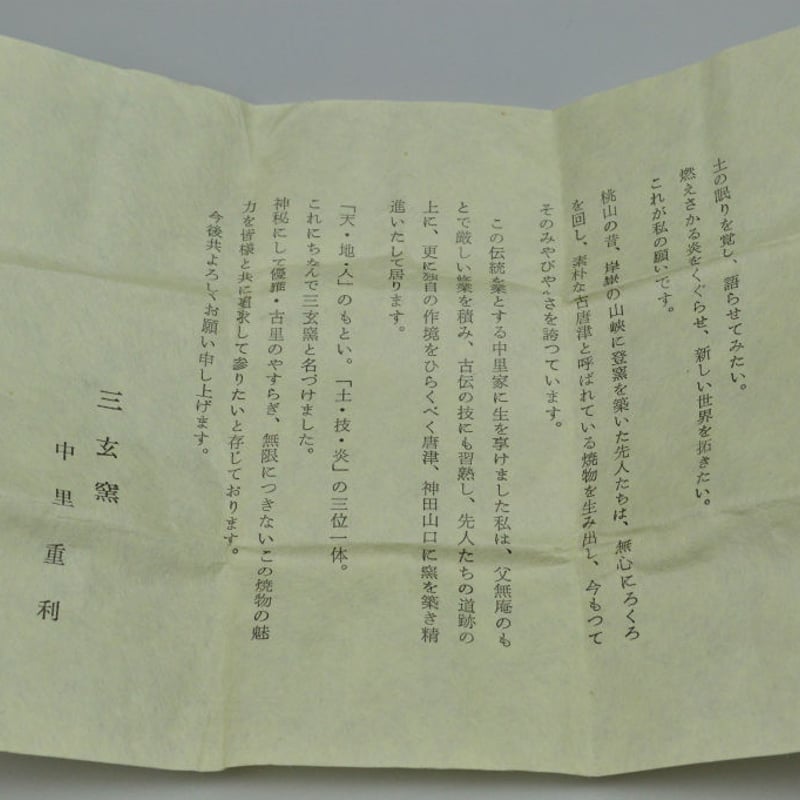 土の眠りを覚し、語らせてみたい。
燃えさかる炎をくぐらせ、新しい世界を拓きたい。
これが私の願いです。
桃山の昔、岸嶽の山峡に登窯を築いた先人たちは、無心にろくろ
を回し、素朴な古唐津と呼ばれている焼物を生み出し、今もつて
そのみやびやかさを誇つています。
この伝統を業とする中里家に生を享けました私は、父無庵のも
とで厳しい業を積み、古伝の技にも習熟し、先人たちの道跡の
上に、更に独自の作境をひらくべく唐津、神田山口に窯を築き精
進いたして居ります。
「天・地・人」のもとい。「土・技・炎」の三位一体。
これにちなんで三玄窯と名づけました。
神秘にして優雅・古里のやすらぎ、無限につきないこの焼物の魅
力を皆様と共に追求して参りたいと存じております。
今後共よろしくお願い申し上げます。
三玄窯
中里重利